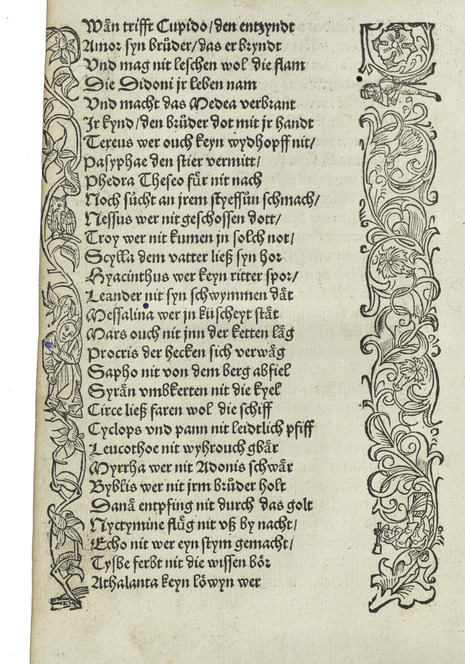 Wån trifft Cupido/den entzyndt
Amor syn brůder/das er bryndt
Vnd mag nit leschen wol die flam
Die Didoni jr leben nam
Vnd macht das Medea verbrant
Ir kynd/den brůder dot mit jr handt
Tereus wer ouch keyn wydhopff nit/
Pasyphae den stier vermitt/
Phedra Theseo fůr nit nach
Noch sůcht an jrem styeffsůn schmach/
Nessus wer nit geschossen dott/
Troy wer nit kumen jn solch not/
Scylla dem vatter ließ syn hor
Hyacinthus wer keyn ritter spor/
Leander nit syn schwymmen dåt
Messalina wer jn küscheyt ståt
Mars ouch nit jnn der ketten låg
Procris der hecken sich verwåg
Sapho nit von dem berg abfiel
Syrån vmbkerten nit die kyel
Circe ließ faren wol die schiff
Cyclops vnd pann nit leidtlich pfiff
Leucothoe nit wyhrouch gbår
Myrrha wer nit Adonis schwår
Byblis wer nit jrm brůder holt
Danå entpfing nit durch das golt
Nyctymine flüg nit vß by nacht/
Echo nit wer eyn stym gemacht/
Tysbe ferbt nit die wissen bör
Athalanta keyn löwyn wer